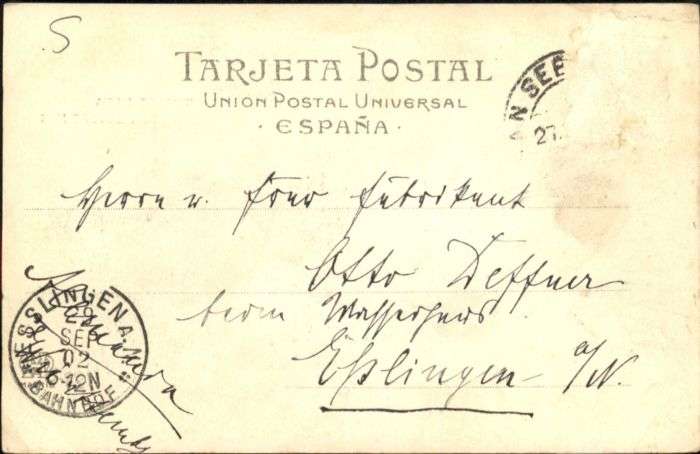 S
TARJETA POSTAL
UNION POSTAL UNIVERSAL
· ESPAÑA ·
AN SEB
27
Herrn u. Frau Fabrikant
Otto Deffner
beim Wasserhaus
Eßlingen a/N.
ESSLINGEN A.
29
SEP
02
6-12N
BAHNHOF